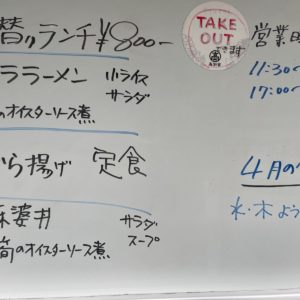 替りランチ¥800-
ラーメン 小ライス
サンダ
のオイスターソース煮
から揚げ 定食
麻婆丼 サラダ
スープ
筍のオイスターソース煮
TAKE
OUT
できます
営業日
11:30~
17:00~
4月の
水・木よう